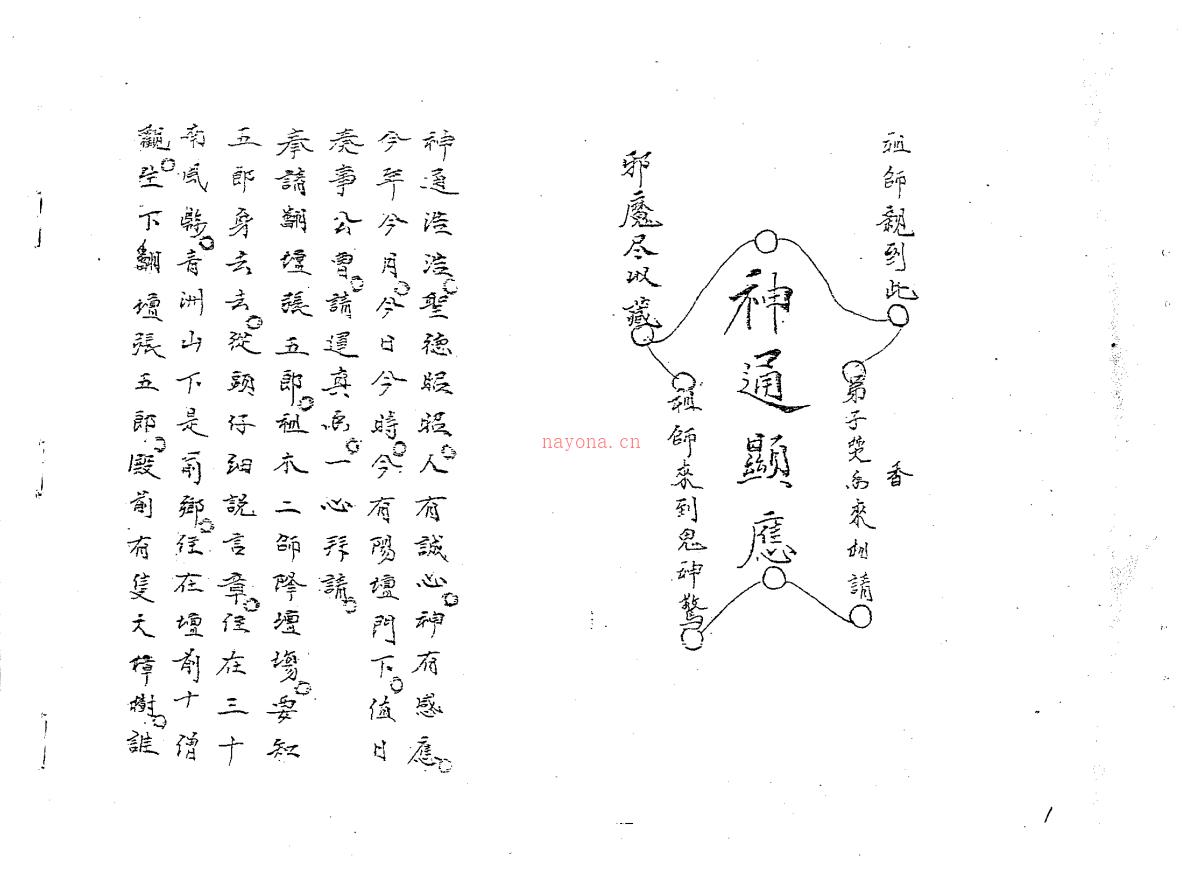 祖師親到此
香
弟子焚香來相請
神通顯應
祖師來到鬼神驚
邪魔尽收藏
神通浩浩聖德昭昭人有誠心神有感應
今年今月今日今時今有陽壇門下値日
奏事公曹請運真香一心拜請
奉請翻壇張五郎祖本二師降壇場要知
五郎身去去從頭仔細説言章住在三十
南風縣青洲山下是前鄉住在壇前十僧
觀坐下翻壇張五郎殿前有隻大樟樹誰
nayona.cn
1